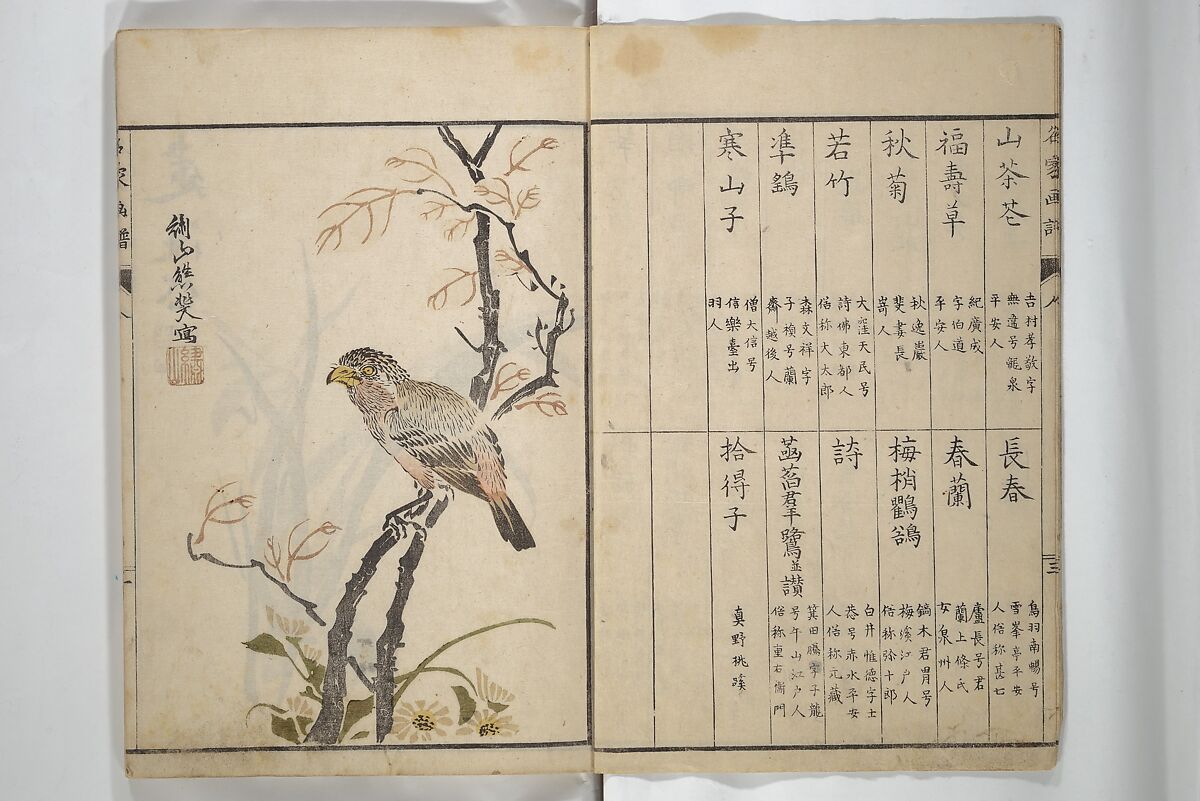 山茶花
吉村孝敬字
無違号龍泉
平安人
福壽草
紀廣成
字伯道
平安人
秋菊
秋逸巖
斐妻長
嵜人
若竹
大窪天民号
詩佛東都人
俗称大太郎
準鷂
森文祥字
子楨号蘭
齋越後人
寒山子
僧大信号
信樂臺出
羽人
長春
鳥羽南暢号
雪峯亭平安
人俗称甚七
春蘭
盧長号君
蘭上條氏
女泉州人
梅梢鸜鵒
鏑木君胄号
梅溪江戸人
俗称弥十郎
詩
白井惟德字士
恭号赤水平安
人俗称元藏
菡萏君羊鷺並讃
箕田騰字子龍
号午山江戸人
俗称重右衛門
拾得子
真野桃蹊
三